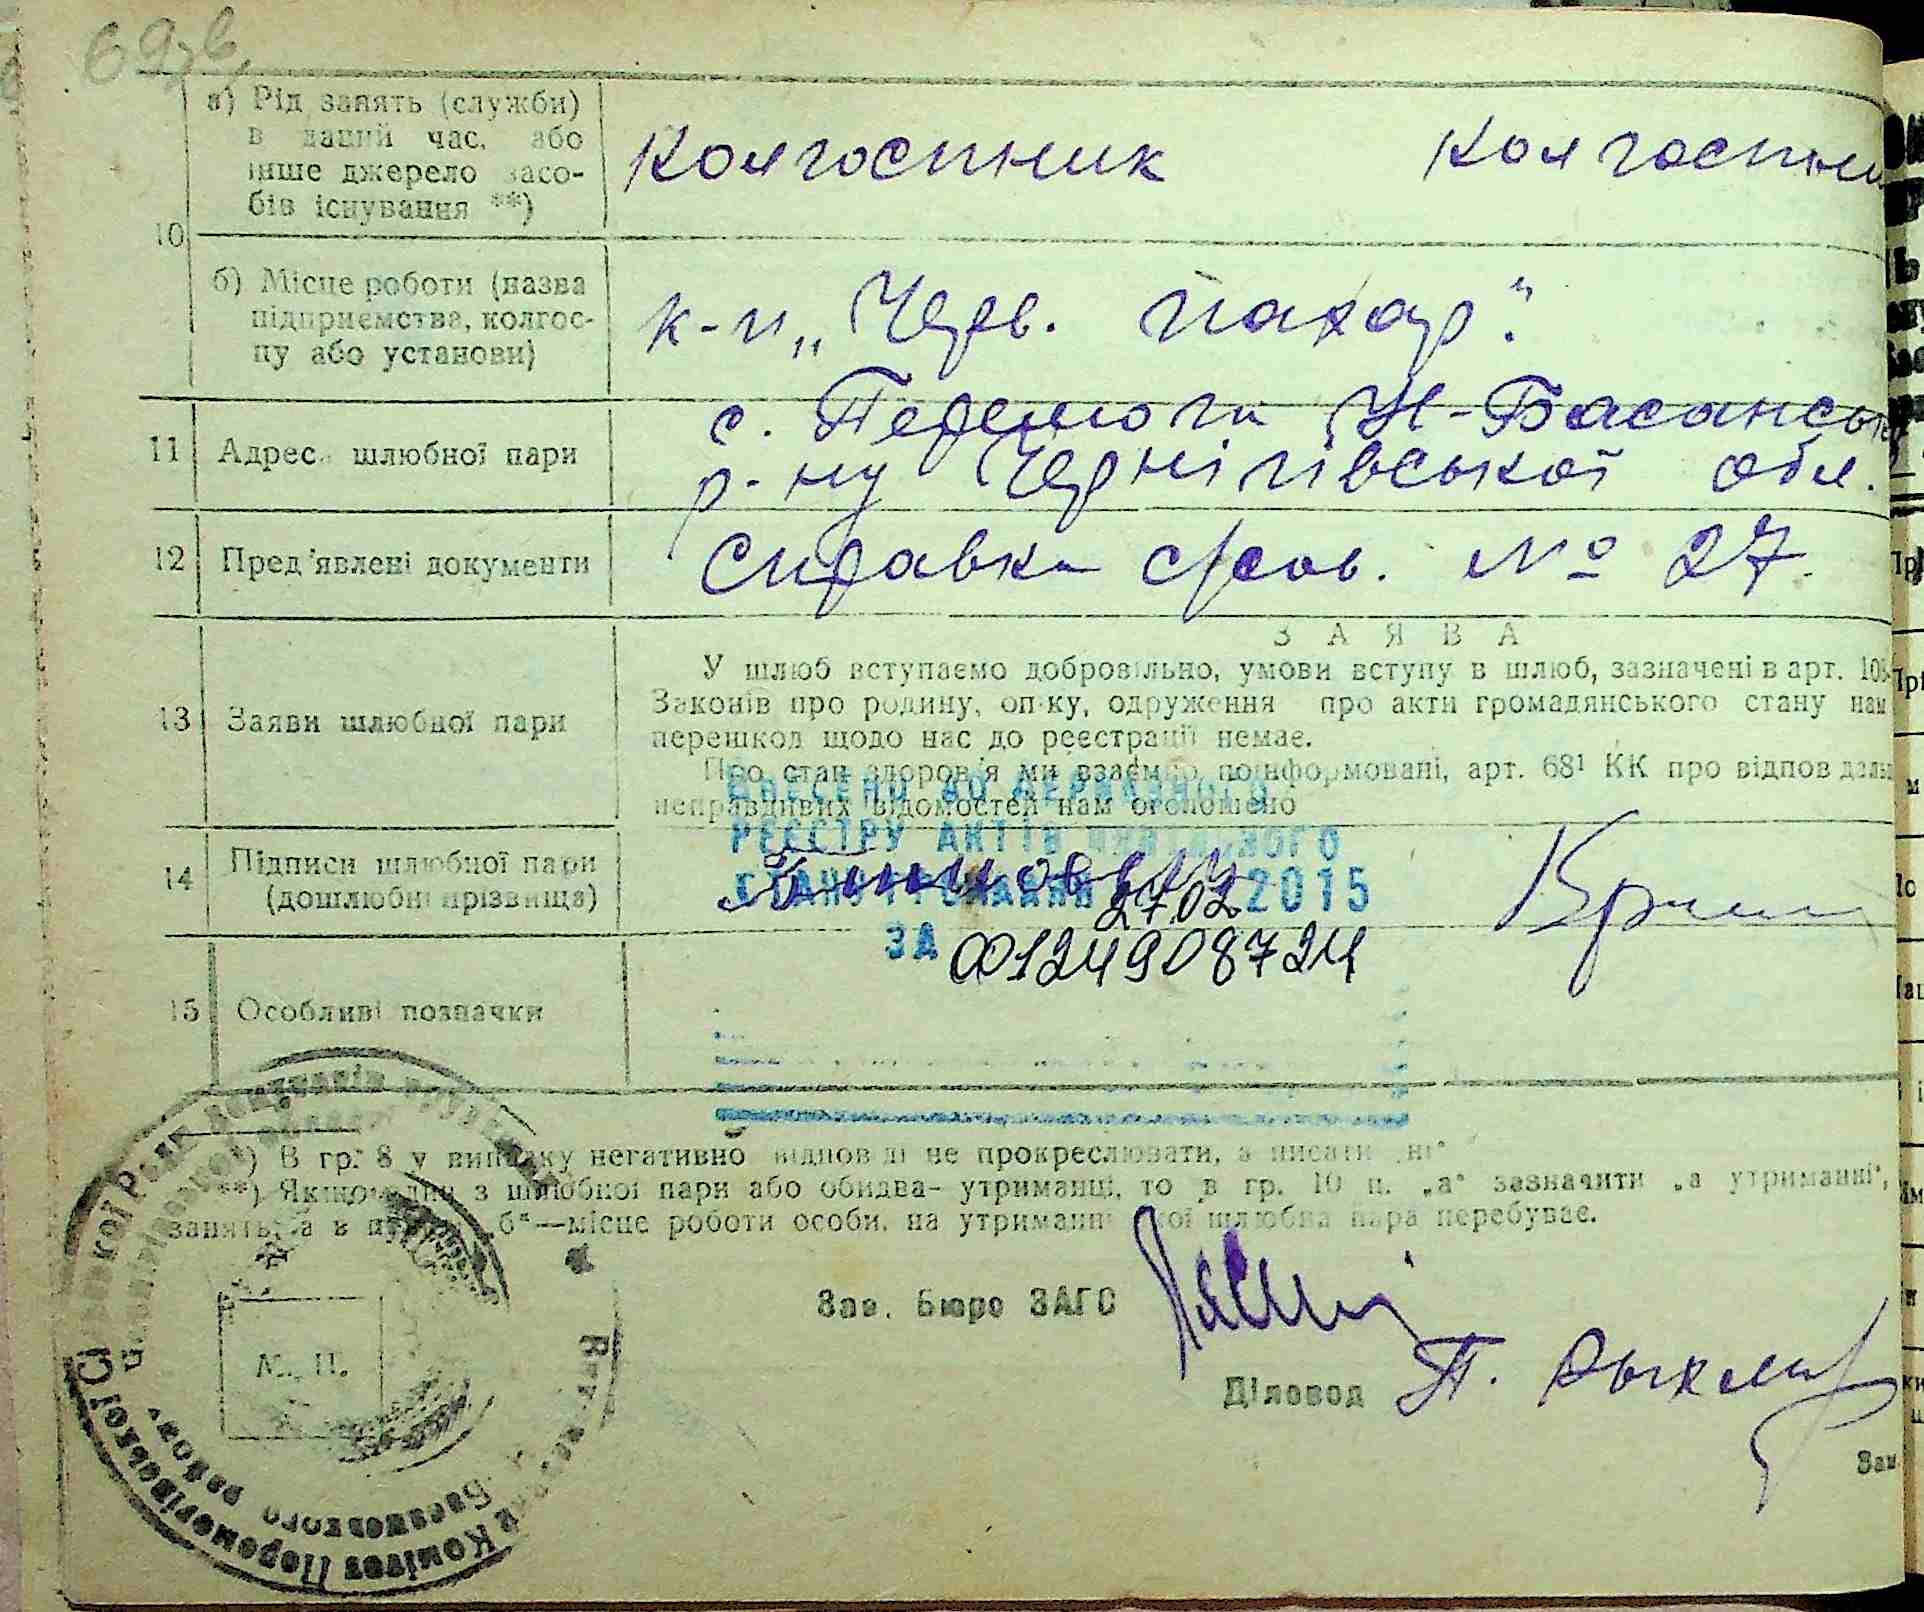 69, в
а) Рід занять (служби)
в даний час, або
інше джерело засо-
бів існування **)
Колгоспник Колгоспни
10
б) Місце роботи (назва
підприємства, колгос-
пу або установи)
к-п „Черв. Пахар".
11 Адреса шлюбної пари
с. Перемога Н-Басансь
р-ну Чернігівської обл.
12 Пред'явлені документи
Справка с/сов. № 27
ЗАЯВА
13 Заяви шлюбної пари
У шлюб вступаємо добровільно, умови вступу в шлюб, зазначені в арт. 105
Законів про родину, опіку, одруження про акти громадянського стану нам
перешкод щодо нас до реєстрації немає.
Про стан здоров'я ми взаємно поінформовані, арт. 68¹ КК про відповідаль
неправдивих відомостей нам оголошено
ВНЕСЕНО ДО ДЕРЖАВНОГО
РЕЄСТРУ АКТІВ ЦИВІЛЬНОГО
СТАНУ ГРОМАДЯН 27.02 2015
ЗА 00124908724
14 Підписи шлюбної пари
(дошлюбні прізвища)
15 Особливі позначки
*) В гр. 8 у випадку негативної відповіді не прокреслювати, а писати „ні"
**) Якщо один з шлюбної пари або обидва- утриманці, то в гр. 10 п. „а" зазначити „а утриманні",
занять, а в пункті „б"—місце роботи особи, на утриманні якої шлюбна пара перебуває.
Зав. Бюро ЗАГС
Діловод
М. П.
Комітет Переможівської Сільської Ради Депутатів
Басанського району
Зав